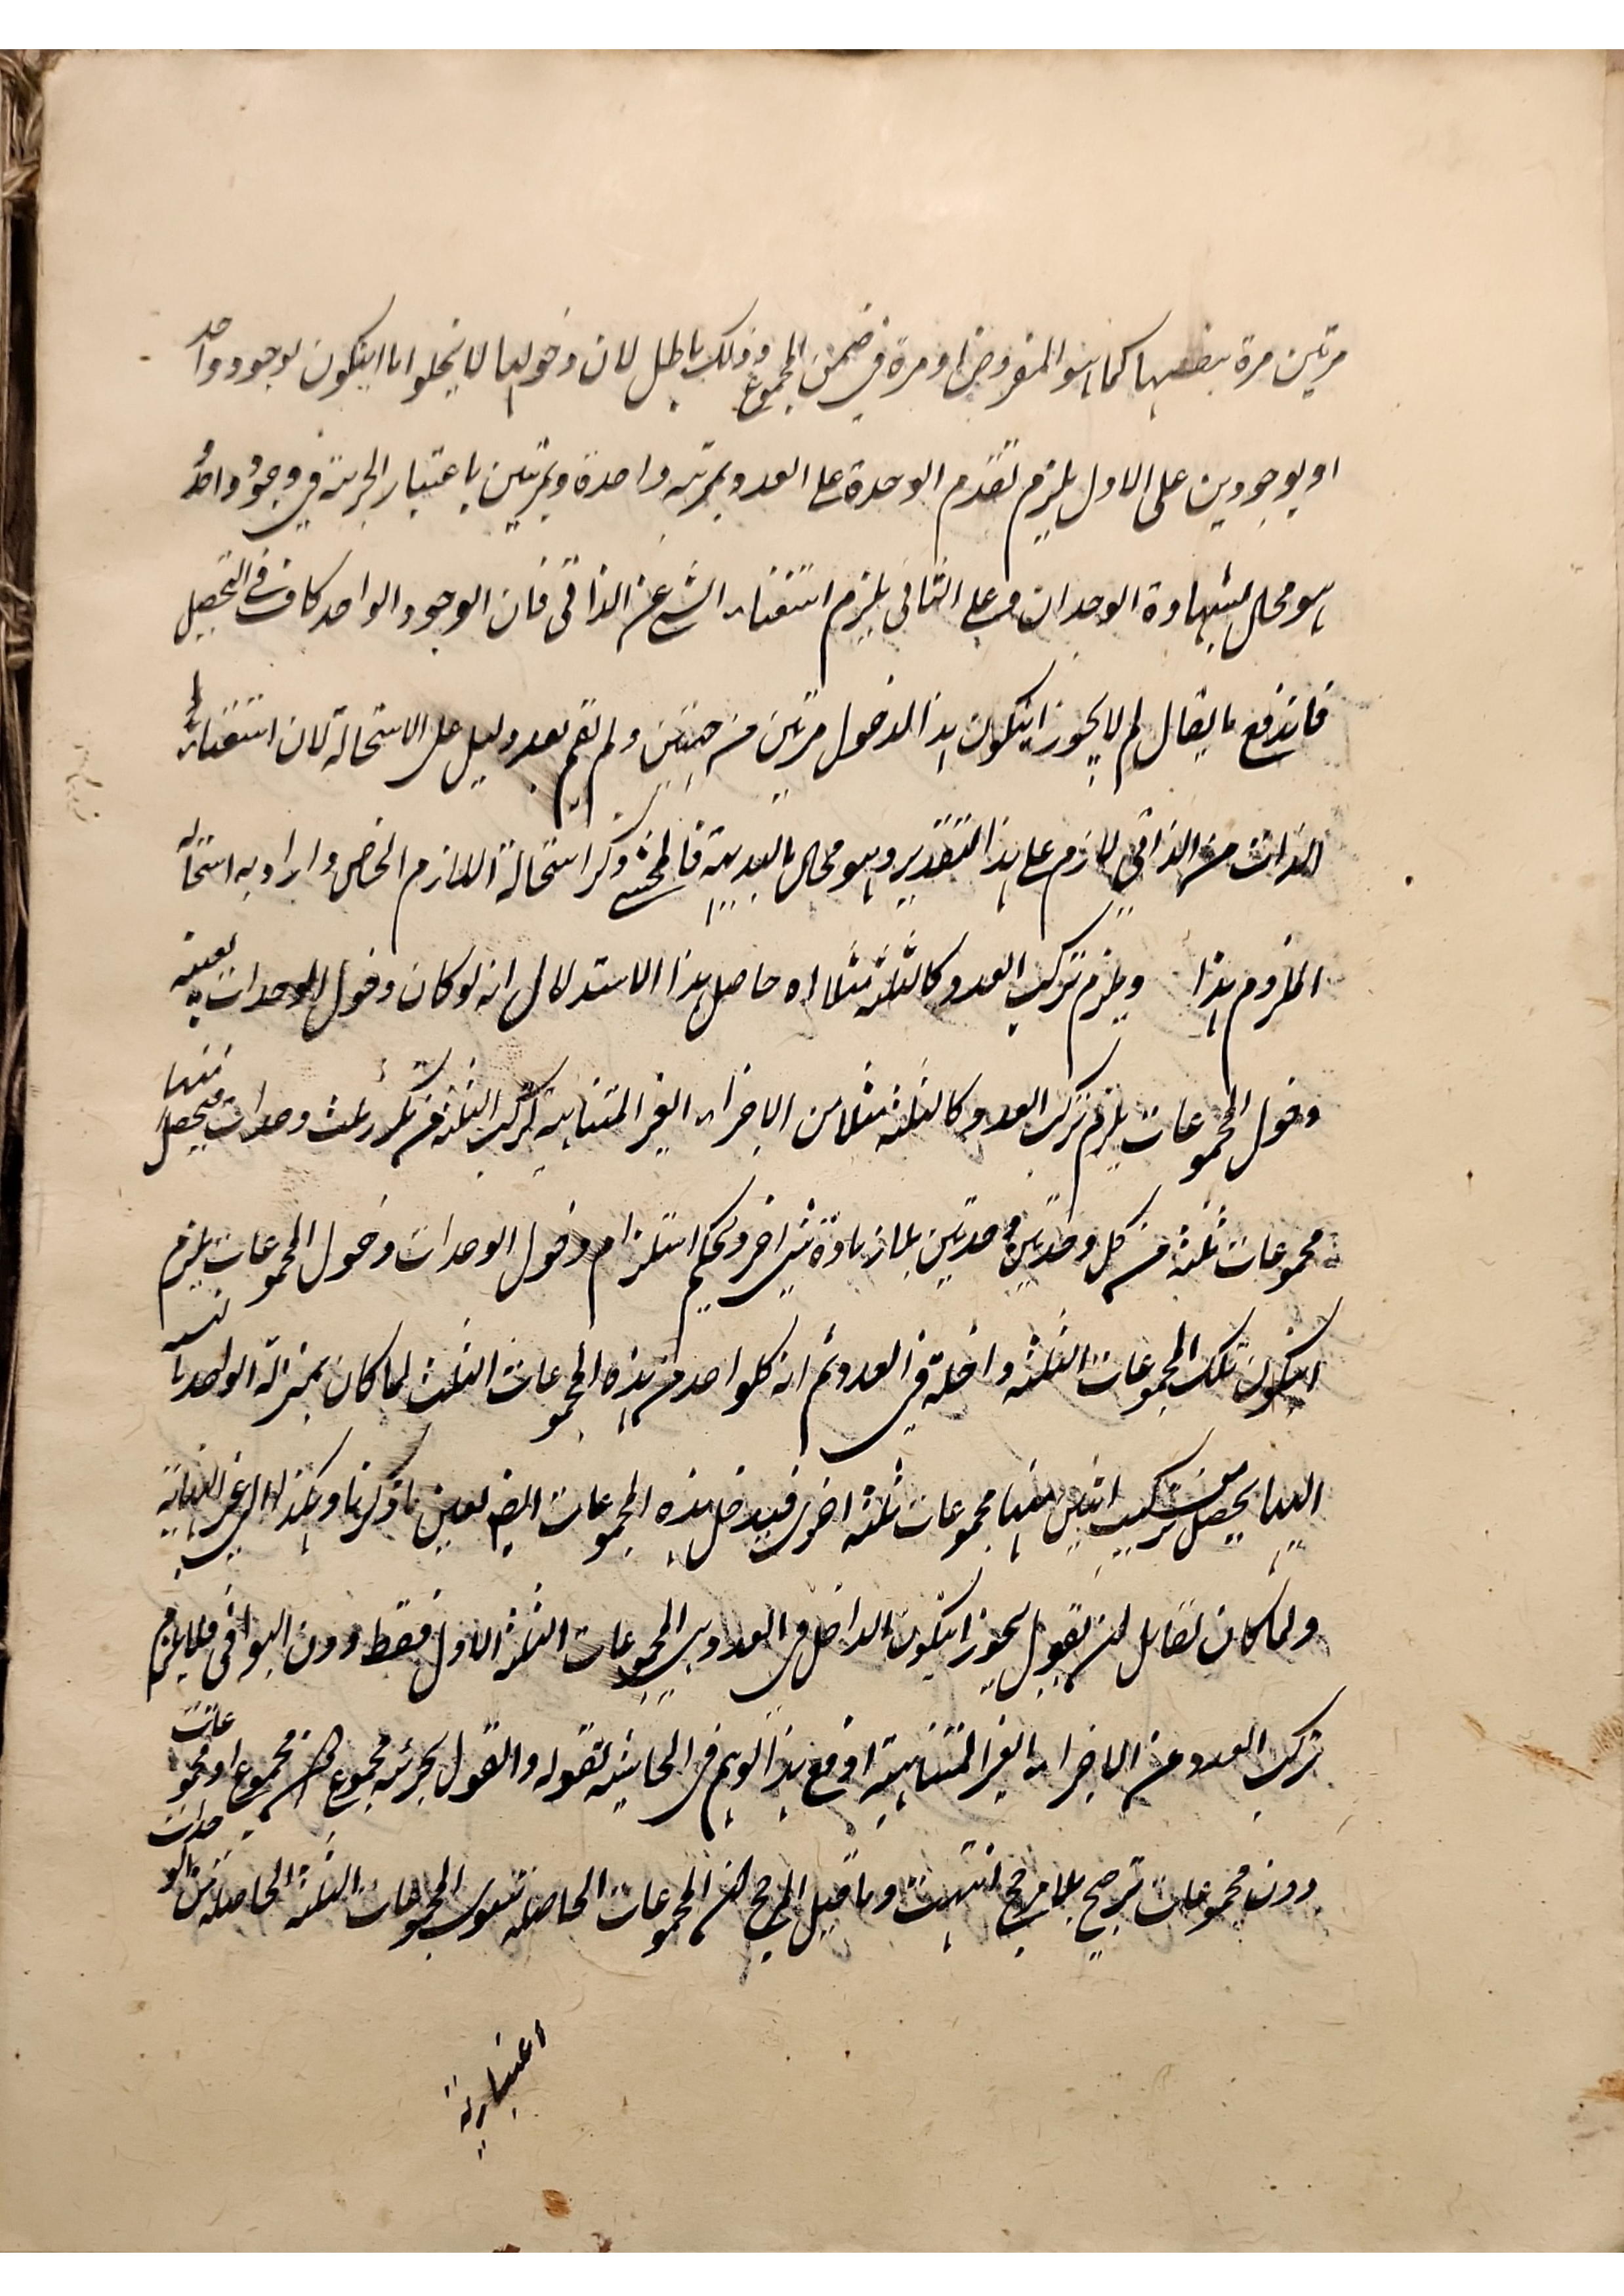 مرتين مرة بنفسها كما هو المفروض ومرة في ضمن المجموع وذلك باطل لان دخولها لا يخلوا اما ايتكون لوجود واحد
او بوجودين على الاول يلزم تقدم الوحدة على العدد بمرتبه واحدة وبمرتبتين باعتبار الجزئية في وجود واحد و
هو محال بشهادة الوجدان وعلى الثاني يلزم استغناء الشي عن الذاتي فان الوجود الواحد كاف في التحصيل
فاندفع ما يقال لم لا يجوز ايتكون هذا الدخول مرتين من جهتين ولم تقم بعد دليل على الاستحالة لان استغناء
الذات من الذاتي لازم على هذا التقدير وهو محال بالبديهة فالمحشى ذكر استحالة اللازم الخاص واراد به استحالة
الملزوم هذا ويلزم تركب العدد كالثلثه مثلا اه حاصل هذا الاستدلال انه لو كان دخول الوحدات بعينه
دخول المجموعات يلزم تركب العدد كالثلثه مثلا من الاجزاء الغير المتناهيه لتركب الثلثة من تكرر ثلث وحدات فيحصل منها
مجموعات ثلثه من كل وحدتين وحدتين بلا زيادة شي اخر وبحكم استلزام دخول الوحدات دخول المجموعات يلزم
ايتكون تلك المجموعات الثلثه داخلة في العدد ثم ان كلواحد من هذه المجموعات الثلث لما كان بمنزلة الواحد بالنسبه
اليها يحصل من تركيب اثنين منها مجموعات ثلثه اخرى فيدخل هذه المجموعات ايضا بعين ما ذكرنا وهكذا الى غير النهاية
ولما كان لقايل ان يقول يجوز ايتكون الداخل في العدد هي المجموعات الثلثه الاول فقط دون البواقى فلا يلزم
تركب العدد من الاجزاء الغير المتناهية دفع هذا الوهم في الحاشيه بقوله والقول بجزئيه مجموع من مجموع او مجموعات
دون مجموعات ترجيح بلا مرجح انتهت وما قيل المرجح ان المجموعات الحاصله سوى المجموعات الثلثه الحاصله من الوحدات
اعتبارية